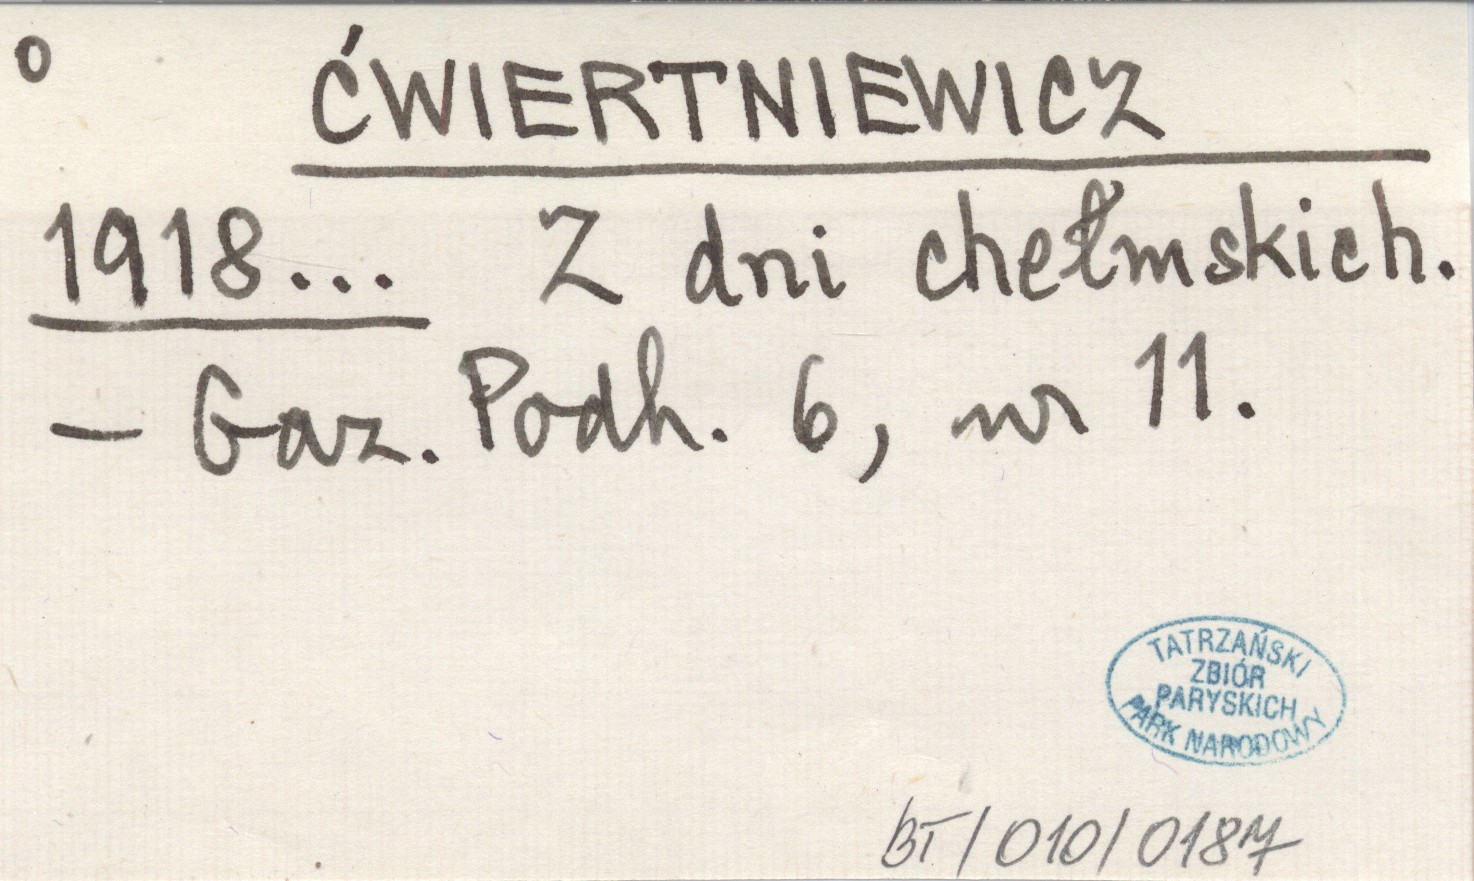 o
ĆWIERTNIEWICZ
1918... Z dni chełmskich.
— Gaz. Podh. 6, nr 11.
TATRZAŃSKI
ZBIÓR
PARYSKICH
PARK NARODOWY
BT/010/0187